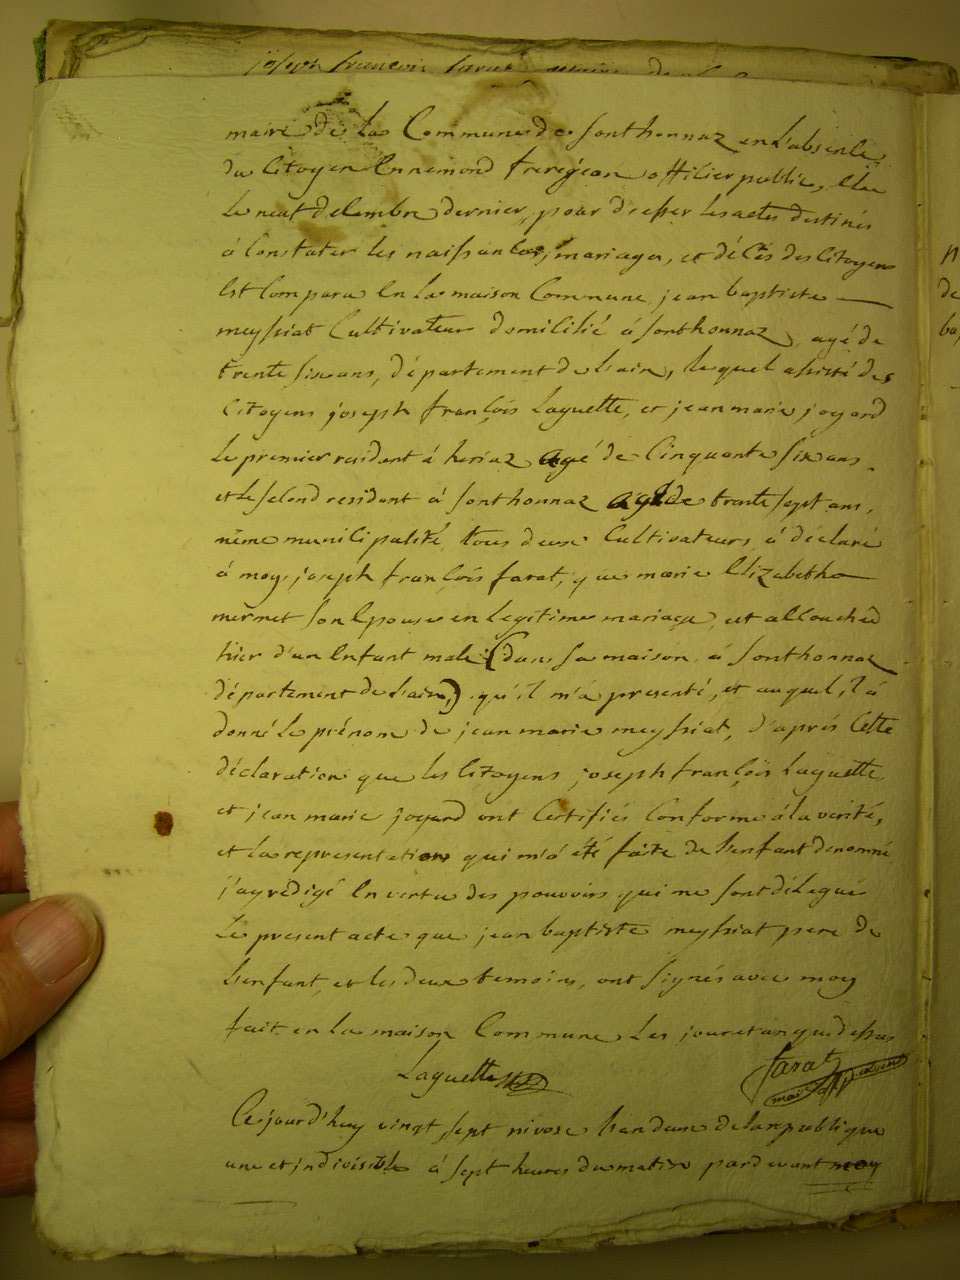 joseph françois farat maire de la
maire de la Commune de Sonthonnaz en L'absence
du Citoyen Ennemond frerejean officier public, élu
Le neuf décembre dernier, pour dresser les actes destinés
à Constater les naissances, mariages, et décès des Citoyens
Est Comparu En la maison Commune jean baptiste
meyssiat Cultivateur domicilié à Sonthonnaz, agé de
trente six ans, département de L'ain, lequel assisté des
Citoyens joseph françois Laguette, et jean marie joyard
Le premier residant à heriaz agé de Cinquante six ans
et le second residant à Sonthonnaz agé de trente sept ans,
même municipalité, tous deux Cultivateurs, à déclaré
à moy, joseph françois farat, que marie Elizabeth
mermet son Epouse en Legitime mariage, est accouchée
hier d'un Enfant male (dans sa maison à Sonthonnaz
département de L'ain,) qu'il m'à presenté, et auquel il à
donné le prénom de jean marie meyssiat, d'aprés Cette
déclaration que les Citoyens joseph françois Laguette
et jean marie joyard ont Certifiés Conforme à la verité,
et la representation qui m'à été faite de L'enfant denommé
j'ay rédigé En vertu des pouvoirs qui me sont délegués
Le present acte que jean baptiste meyssiat pere de
L'enfant, et les deux temoins, ont Signés avec moy
fait en la maison Commune Les jour et an que dessus
Laguette farat
maire
Ce jourd'huy vingt sept nivose L'an deux de la republique
une et indivisible à sept heures du matin par devant moy